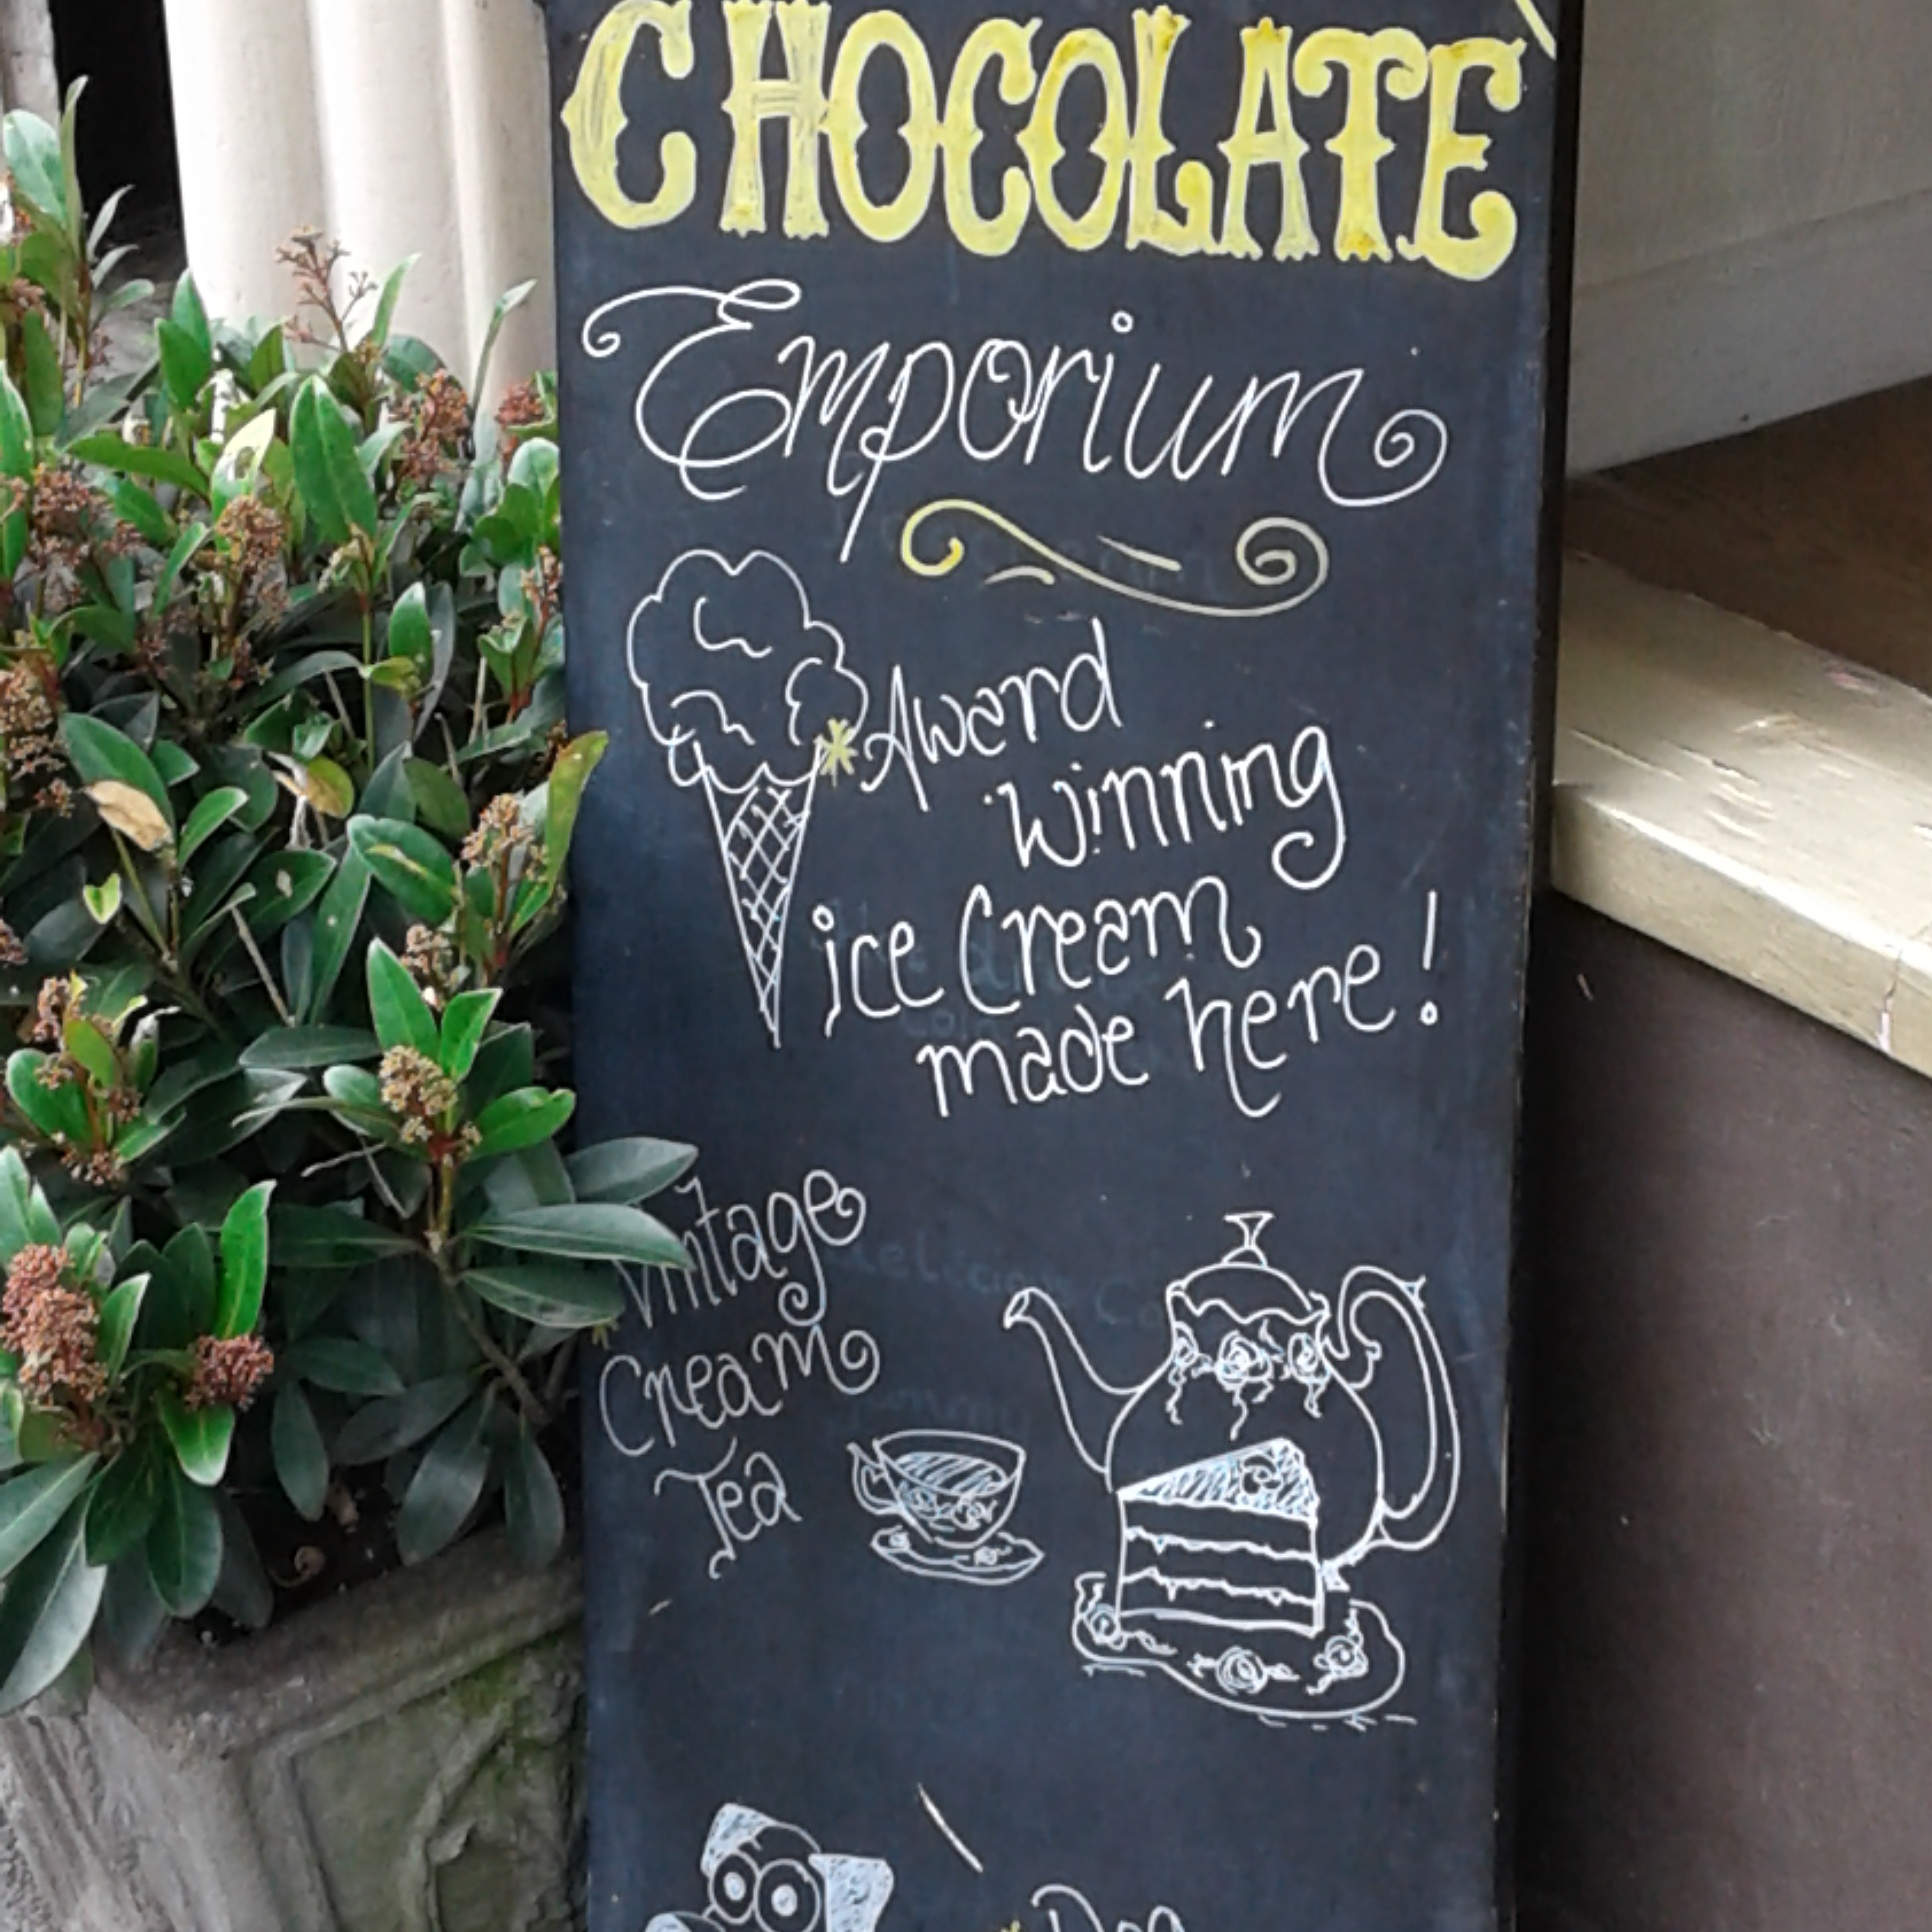 CHOCOLATE
Emporium
Award
Winning
ice Cream
made here!
Vintage
Cream
Tea
Dog